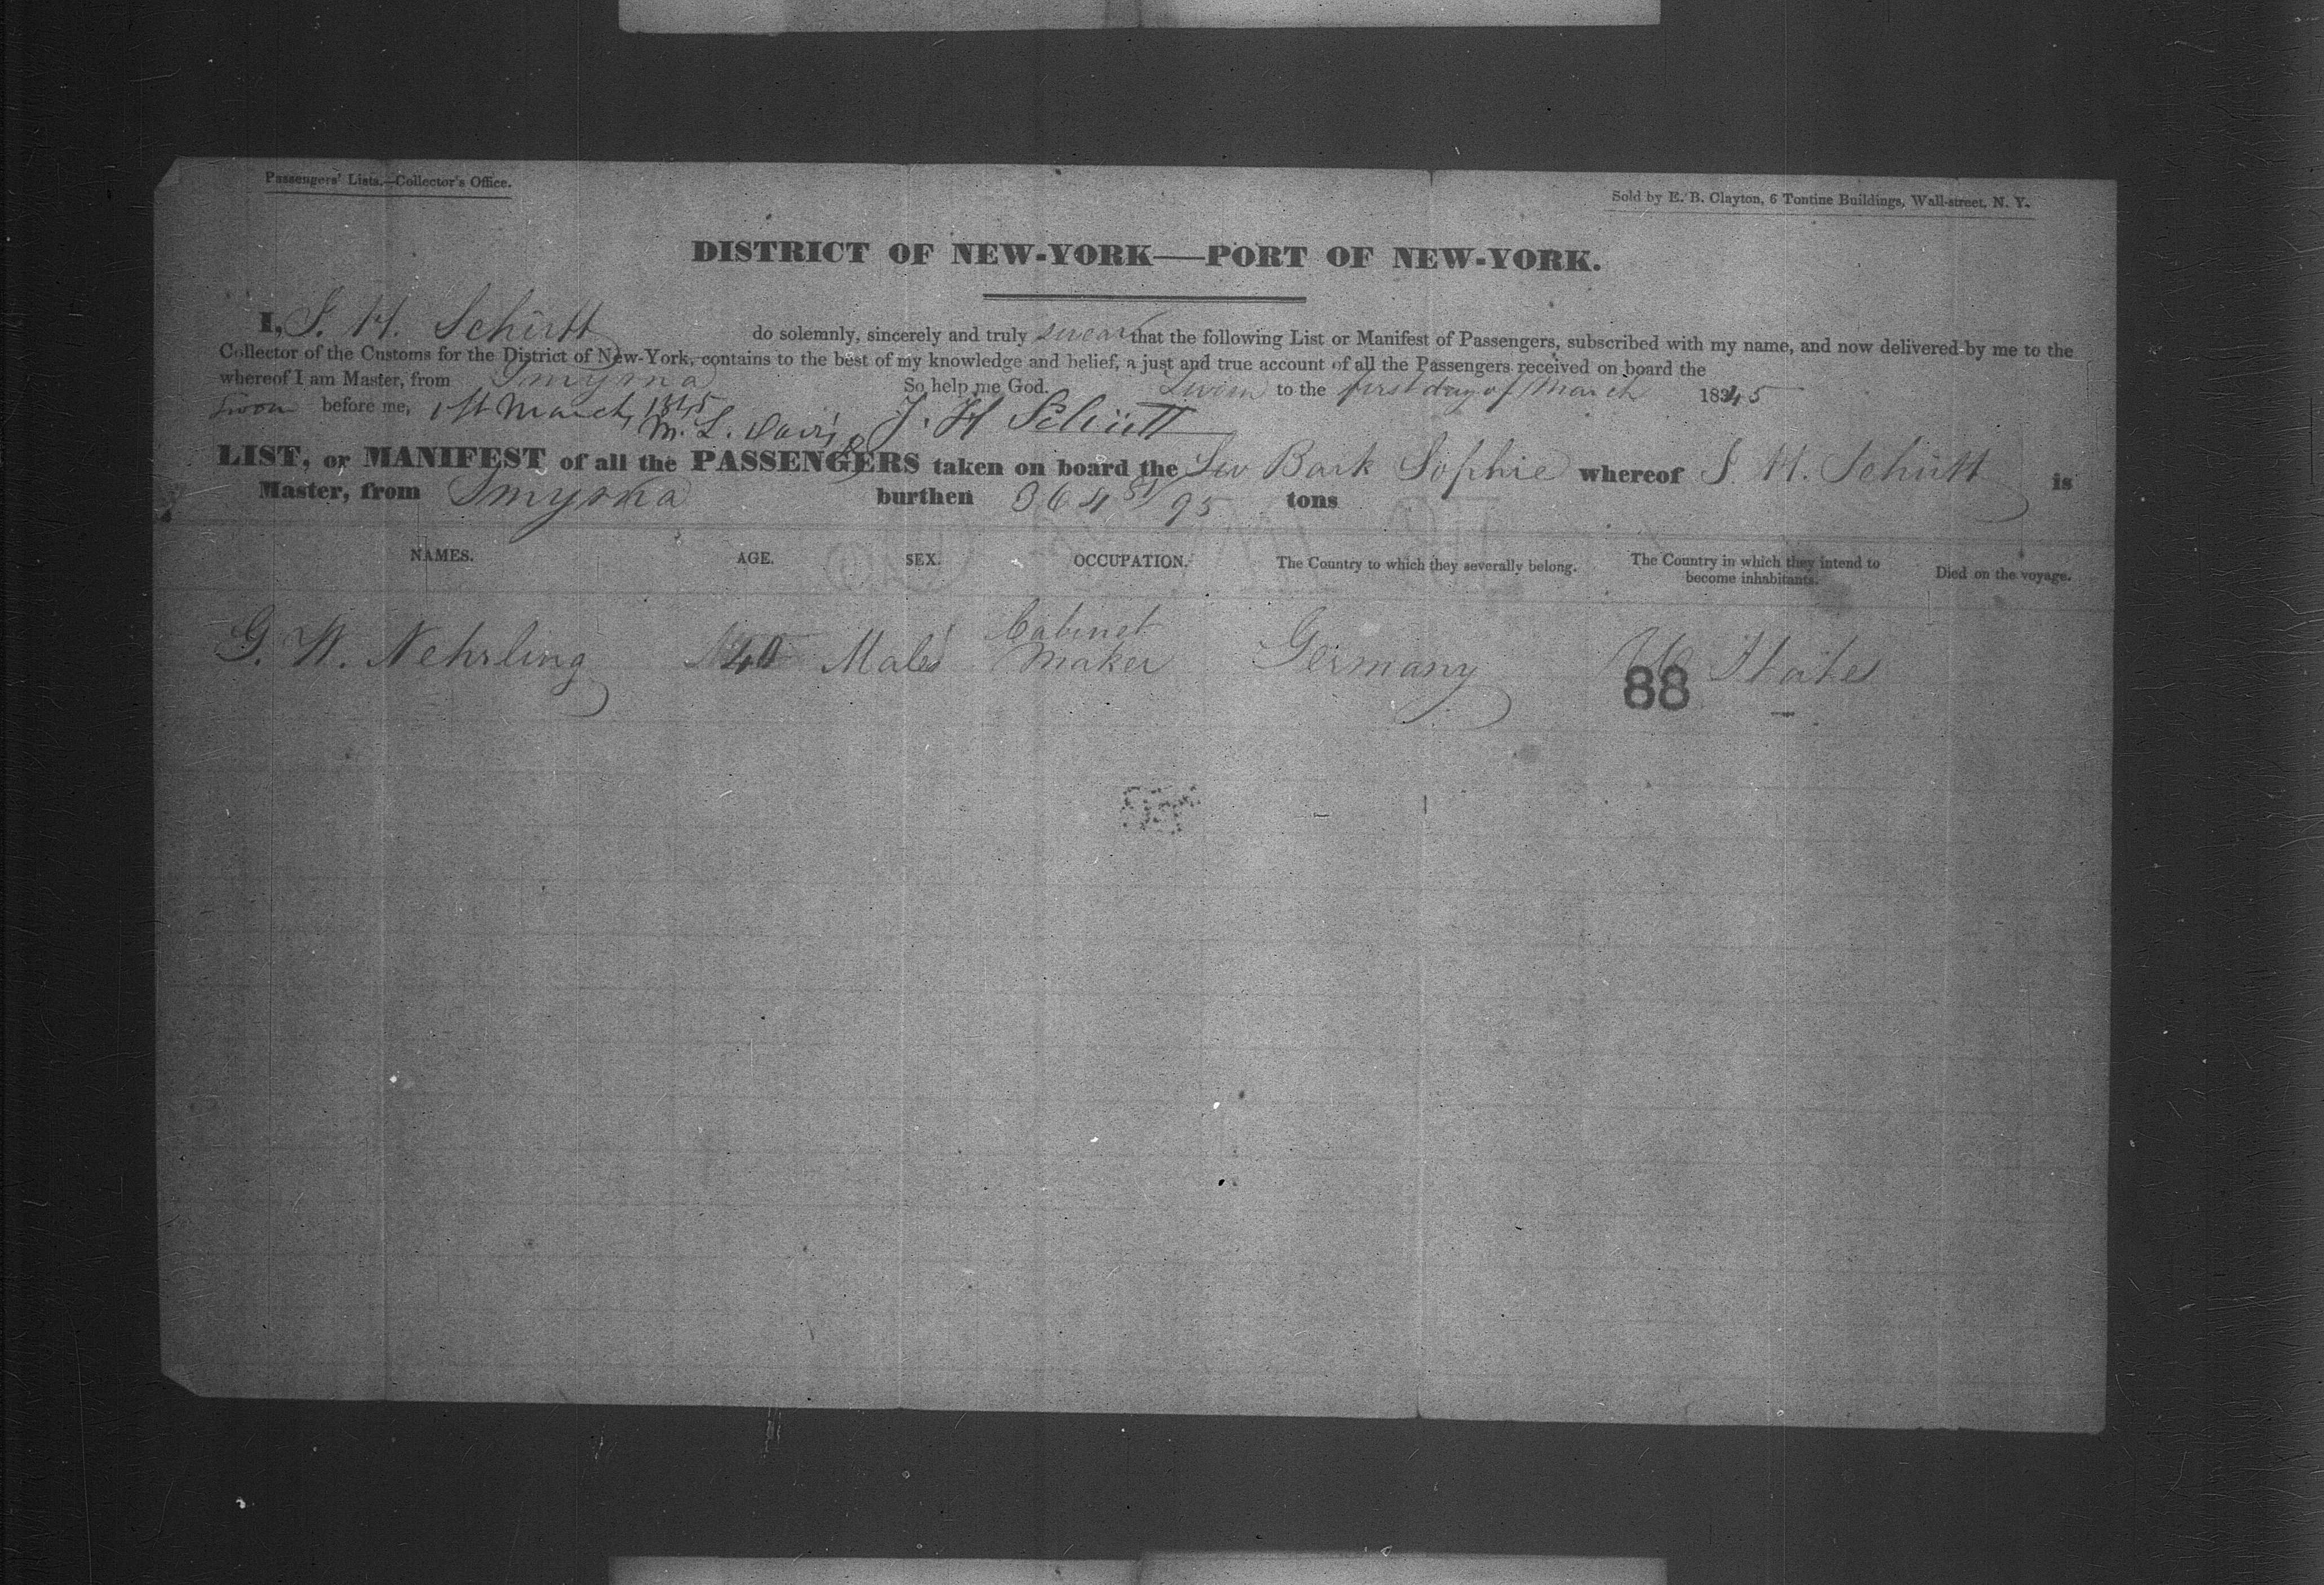 Passengers' Lists.—Collector's Office.
Sold by E. B. Clayton, 6 Tontine Buildings, Wall-street, N. Y.
DISTRICT OF NEW-YORK—PORT OF NEW-YORK.
I, J. H. Schütt do solemnly, sincerely and truly swear that the following List or Manifest of Passengers, subscribed with my name, and now delivered by me to the
Collector of the Customs for the District of New-York, contains to the best of my knowledge and belief, a just and true account of all the Passengers received on board the
whereof I am Master, from Smyrna So help me God.
Sworn to the first day of March 1845
Sworn before me, 1st March, 1845
M. L. Davis J. H Schütt
LIST, or MANIFEST of all the PASSENGERS taken on board the Bark Sophie whereof J. H. Schütt is
Master, from Smyrna burthen 364 51/95 tons
NAMES. AGE. SEX. OCCUPATION. The Country to which they severally belong. The Country in which they intend to become inhabitants. Died on the voyage.
G. W. Nehrling 40 Male Cabinet Maker Germany U States
88